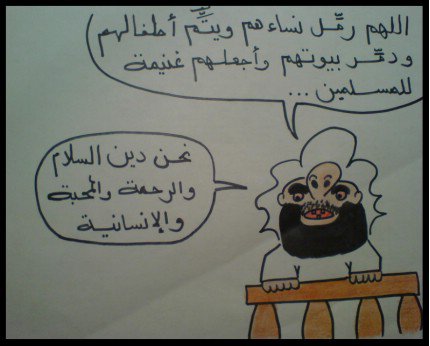 اللهم رمِّل نساءهم ويتِّم أطفالهم
ودمِّر بيوتهم وأجعلهم غنيمة
للمسلمين ...
نحن دين السلام
والرحمة والمحبة
والإنسانية